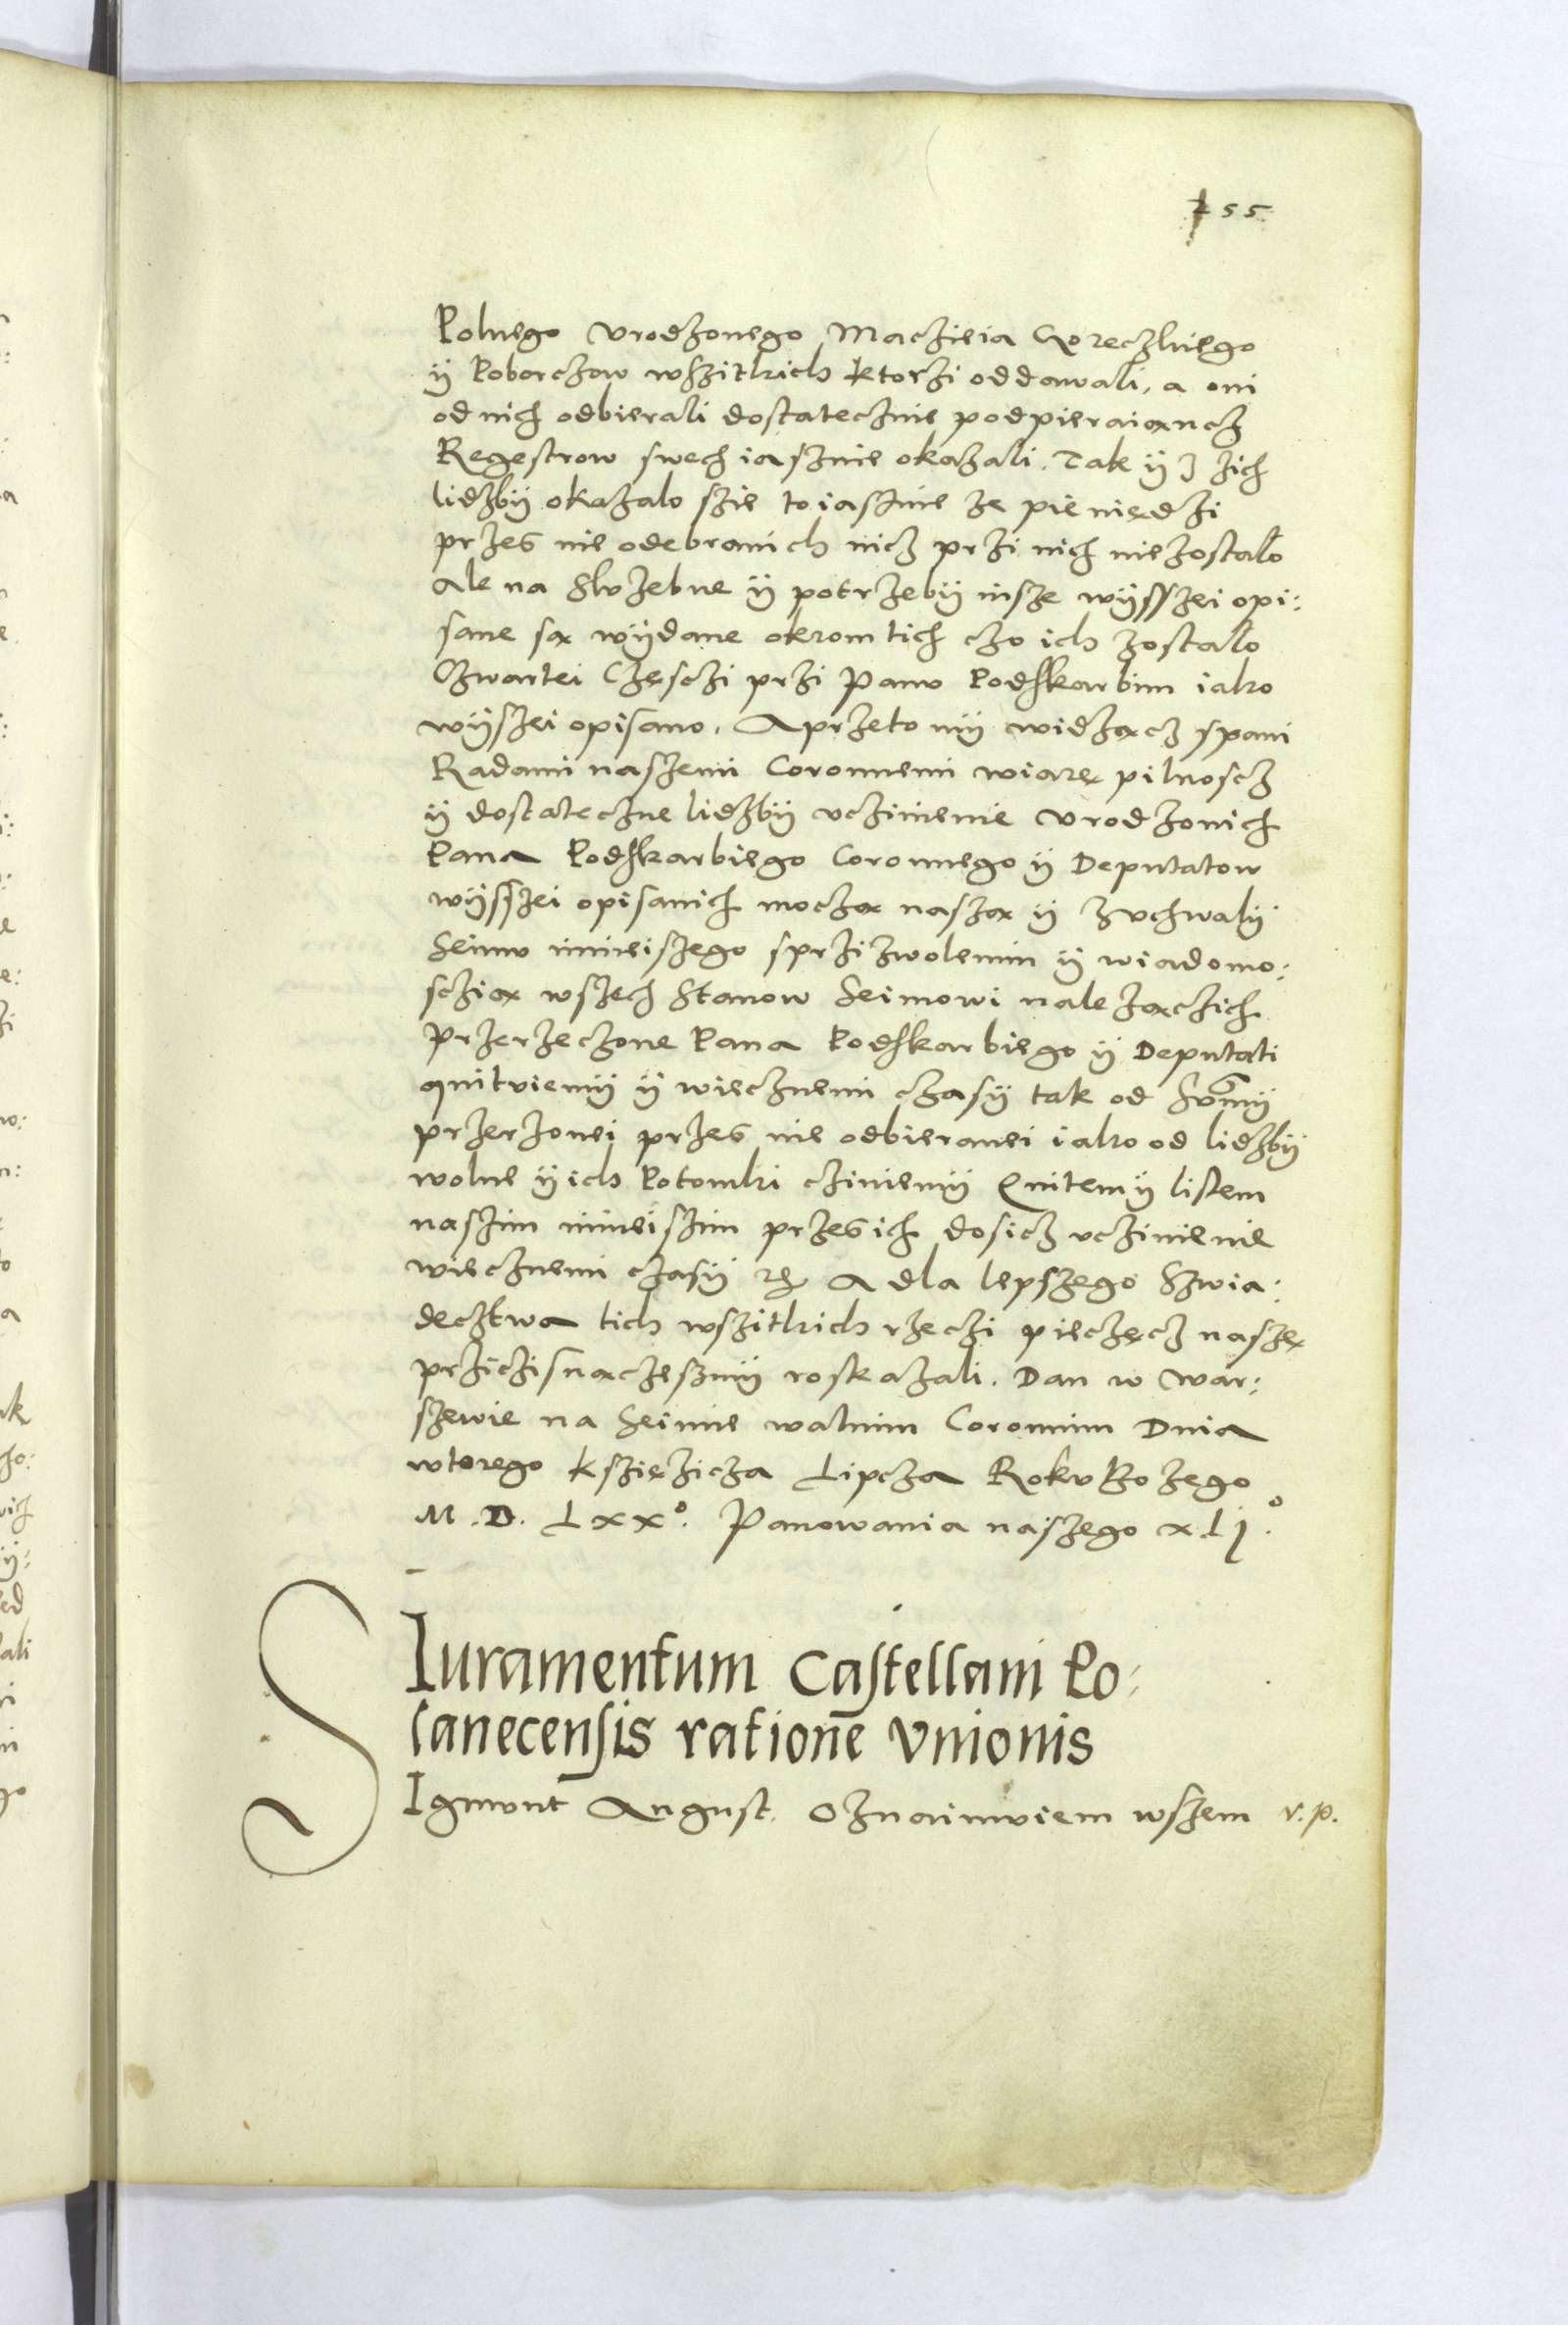 255
Polnego Vrodzonego Macżieia Goreczkiego
ÿ Poborczow wszitkich ktorzi oddawali, a oni
od nich odbierali dostatecznie podpieraiąncz
Regestrow swech iasznie okazali. Tak ÿ z zich
lidzbÿ okazalo szie to iasznie że pieniędzi
przes nie odebranich nicz przi nich niezostalo
Ale na Służebne ÿ potrzebÿ insze wÿsszei opi:
sane są wÿdane okrom tich czo ich zostalo
Czwartei Części przi Panu Podskarbim iako
wÿszei opisano. A przeto mÿ widząc spani
Radami naszemi Coronnemi wiarę pilnoscz
ÿ dostateczne lidzbÿ vczinienie Vrodzonich
Pana Podskarbiego Coronnego ÿ Deputatow
wÿsszei opisanich moczą naszą ÿ z vchwalÿ
Seimu ninieiszego sprzizwolenim ÿ wiadomo:
scią wszech Stanow Seimowi należączich
Przerzeczone Pana Podskarbiego ÿ Deputati
quituiemÿ ÿ wiecznemi czasÿ tak od Summÿ
przerzonei przes nie odbieranei iako od lidzbÿ
wolne ÿ ich Potomki cziniemÿ Quitem ÿ listem
naszim ninieiszim przes ich dosicz vczinienie
wiecznemi czasÿ etc. A dla lepszego Szwia:
decztwa tich wszitkich rzeczi pieczęcz naszę
przicisnącżeszmÿ roskazali. Dan w War:
szewie na Seimie walnim Coronnim Dnia
wtorego Księzicza Lipcza Roku Bożego
M. D. Lxx°. Panowania naszego xLj.°
Iuramentum Castellani Po=
lanecensis ratione Vnionis
SIgmunt August. Oznaimuiem wszem v. p.